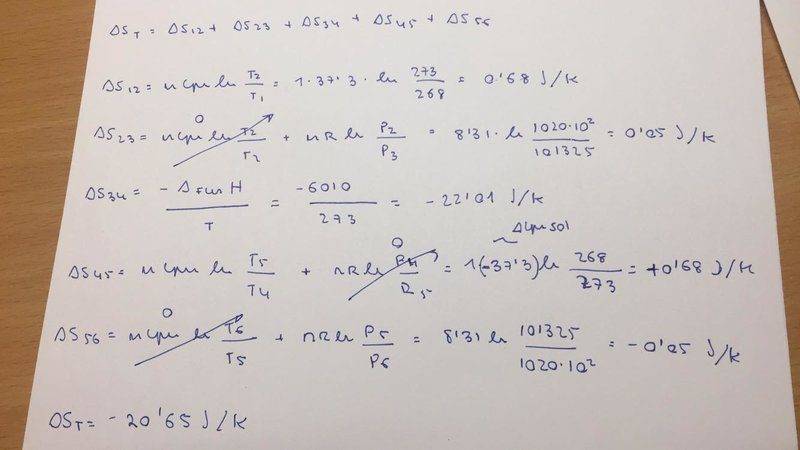 ΔS_T = ΔS12 + ΔS23 + ΔS34 + ΔS45 + ΔS56
ΔS12 = n Cpm ln T2/T1 = 1·37'3· ln 273/268 = 0'68 J/K
0
ΔS23 = n Cpm ln T2/T2 + nR ln P2/P3 = 8'31· ln 1020·10²/101325 = 0'05 J/K
ΔS34 = -Δfus H / T = -6010/273 = -22'01 J/K
0 ΔCpm sol
ΔS45 = n Cpm ln T5/T4 + nR ln P4/P5 = 1(-37'3) ln 268/273 = +0'68 J/K
0
ΔS56 = n Cpm ln T6/T5 + nR ln P5/P6 = 8'31 ln 101325/1020·10² = -0'05 J/K
ΔS_T = -20'65 J/K